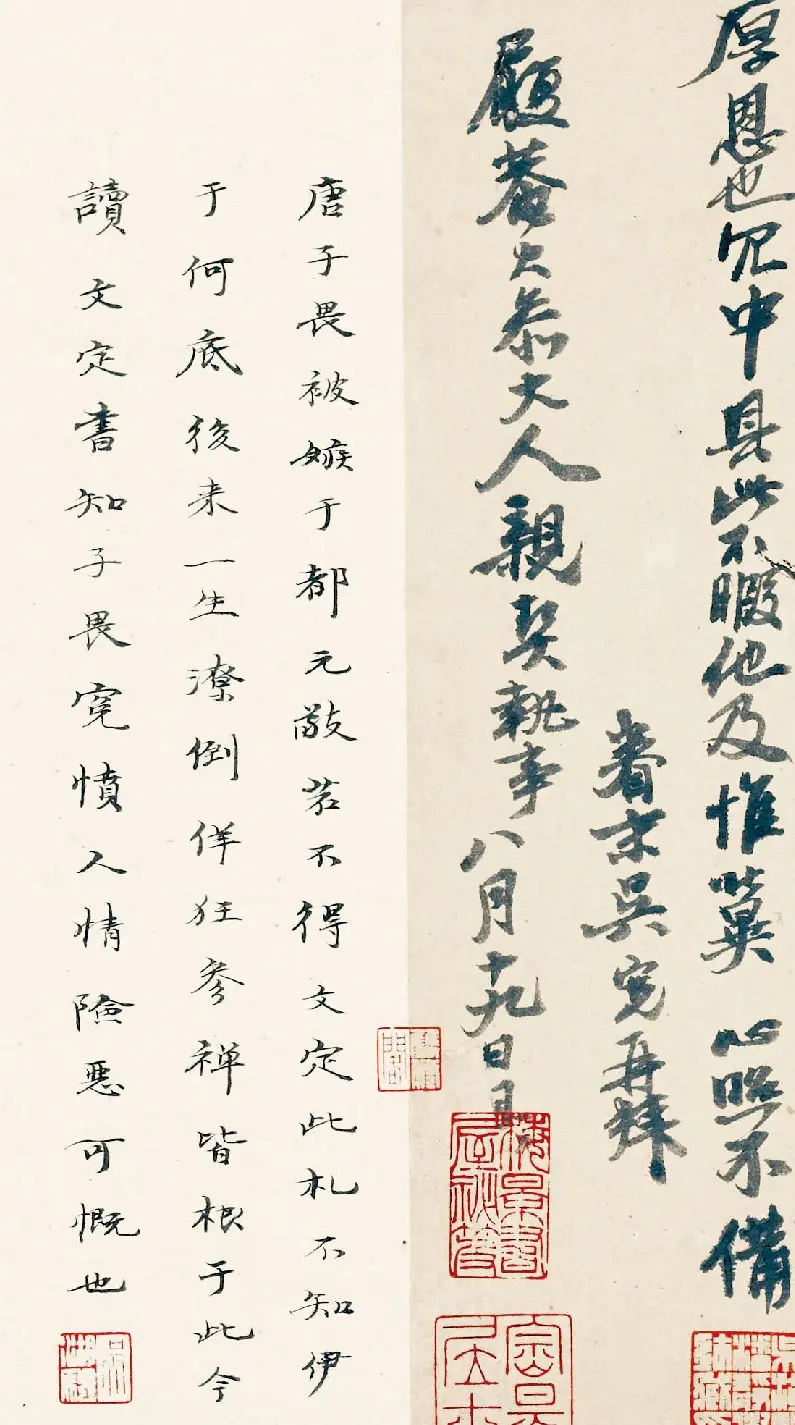 厚恩也冗中具此不暇他及惟冀 心照不備
眷末吳寬再拜
履菴大參大人親契執事 八月十九日
唐子畏被嫉于都元敬若不得文定此札不知伊
于何底後来一生潦倒佯狂参禅皆根于此今
讀文定書知子畏寃憤人情險惡可慨也